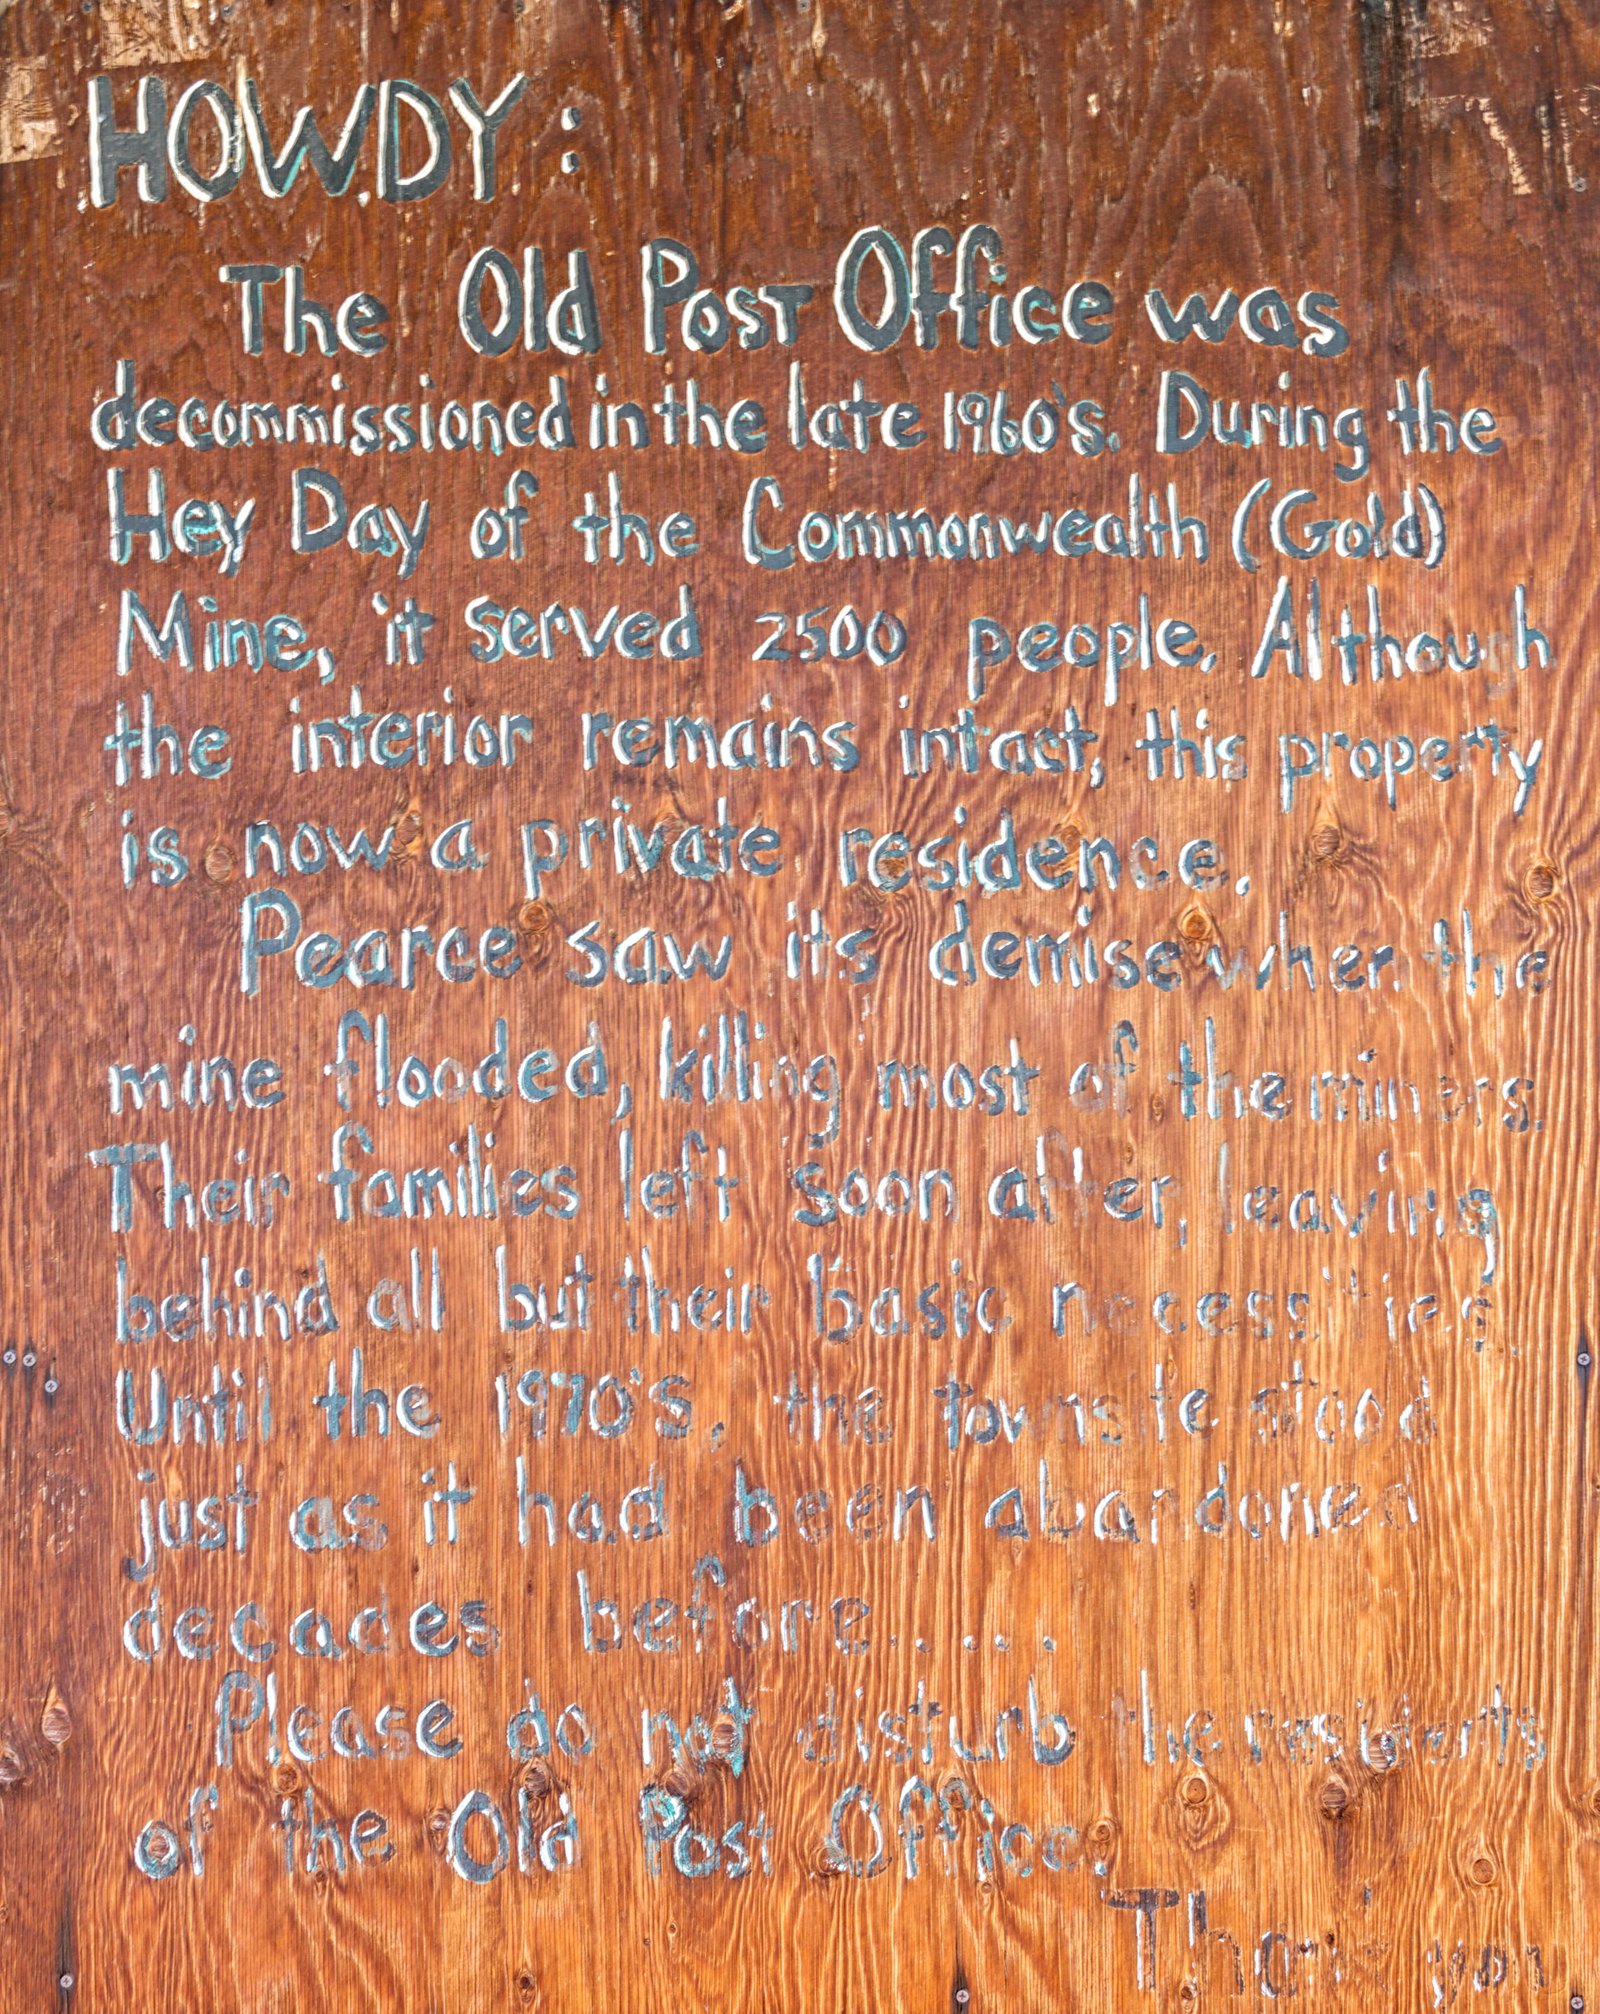 HOWDY:
The Old Post Office was
decommissioned in the late 1960's. During the
Hey Day of the Commonwealth (Gold)
Mine, it served 2500 people. Although
the interior remains intact, this property
is now a private residence.
Pearce saw its demise when the
mine flooded, killing most of the miners.
Their families left soon after, leaving
behind all but their basic necessities.
Until the 1970's, the townsite stood
just as it had been abandoned
decades before.....
Please do not disturb the residents
of the Old Post Office.
Thank you